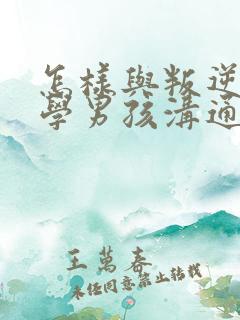 怎樣與叛逆
學男孩溝通
王萬春
未任同意禁止轉載